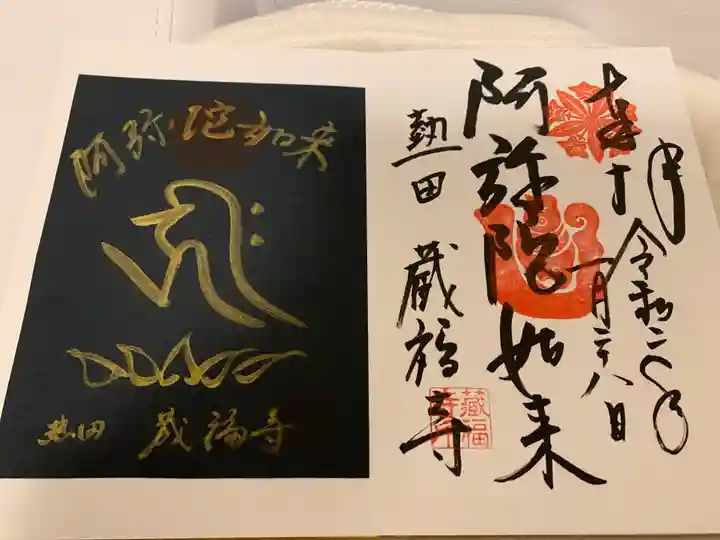 令和二年
一月二十八日
阿弥陀如来
熱田 蔵福寺
蔵福寺印
阿弥陀如来
熱田 蔵福寺